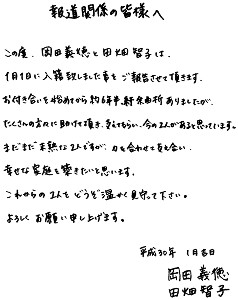 報道関係の皆様へ
この度、岡田義徳と田畑智子は、
1月1日に入籍致しました事をご報告させて頂きます。
お付き合いを始めてから約6年半、紆余曲折ありましたが、
たくさんの方々に助けて頂き、支えてもらい、今の2人があると思っています。
まだまだ未熟な2人ですが、力を合わせて支え合い
幸せな家庭を築きたいと思います。
これからの2人をどうぞ温かく見守って下さい。
よろしくお願い申し上げます。
平成30年 1月吉日
岡田義徳
田畑智子